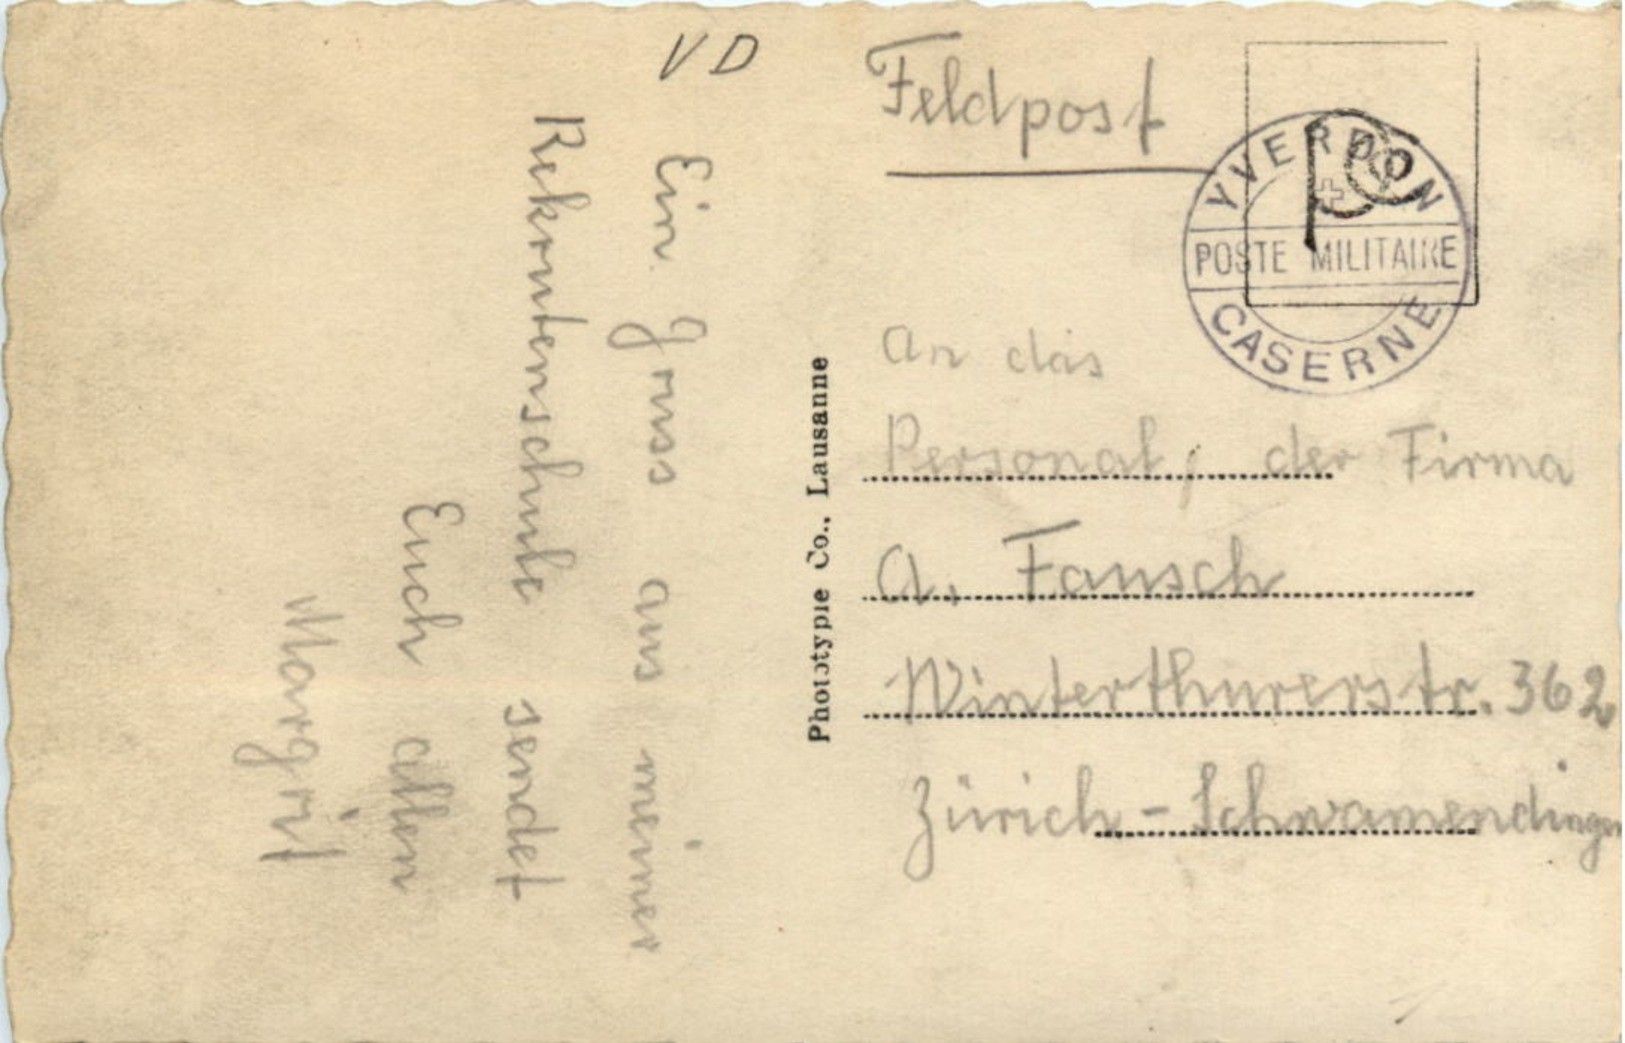 VD
Ein Gruss aus meiner
Rekrutenschule sendet
Euch allen
Margrit
Phototypie Co., Lausanne
Feldpost
YVERDON
POSTE MILITAIRE
CASERNE
An das
Personal, der Firma
A. Fausch
Winterthurerstr. 362
Zürich - Schwamendingen